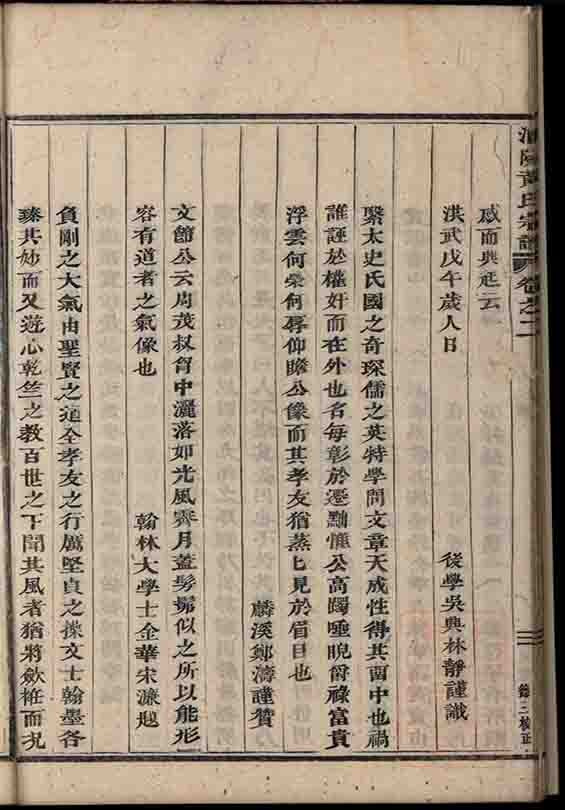 黃氏宗譜 卷之二
感而興起云
洪武戊午歲人日 後學吳興林靜謹識
繄太史氏國之奇琛儒之英特學問文章天成性得其西中也禍
誰誣於權奸而在外也名每彰於遷黜惟公高躅唾睨爵祿富貴
浮雲何榮何辱仰瞻公像而其孝友猶蒸匕見於眉目也
麟溪鄭濤謹贊
文節公云周茂叔胷中灑落如光風霽月蓋髣髴似之所以能形
容有道者之氣像也
翰林大學士金華宋濂題
負剛之大氣由聖賢之道全孝友之行厲堅貞之操文士翰墨各
臻其妙而又遊心乾竺之教百世之下聞其風者猶將斂袵而况
三
錄三校正